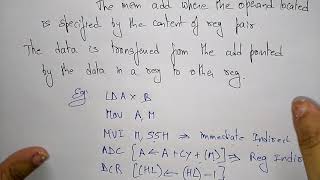 The mem add where the operand located
is specified by the content of reg pair
The data is transferred from the add pointed
by the data in a reg to other reg.
Eg: LDAX B
Mov A, M
MVI M, 55H ⇒ immediate Indirect
ADC [A ← A + CY + (M)] ⇒ Reg Indir
DCR [(HL) ← (HL) - 1]